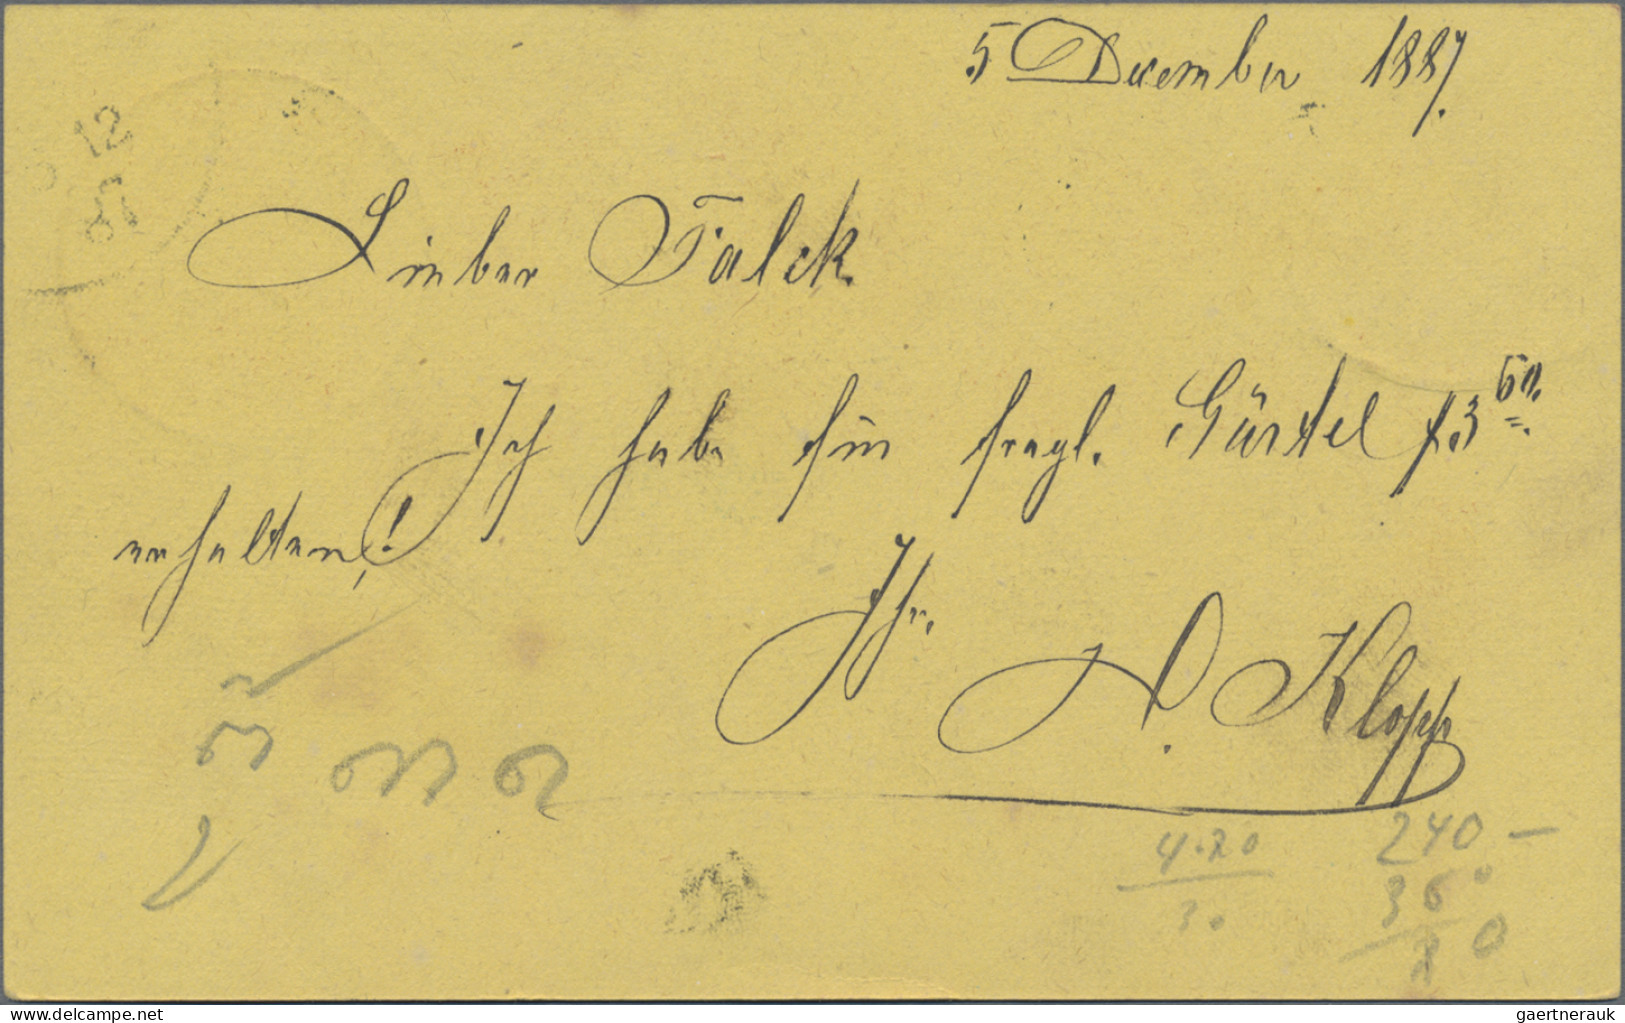 5 December 1887.
12
87
Lieber Falck
Ich habe für fragl. Gürtel f. 3 60.
erhalten!
Ihr.
A. Klopp
4.20
30
240 —
360
0
www.delcampe.net
gaertnerauk